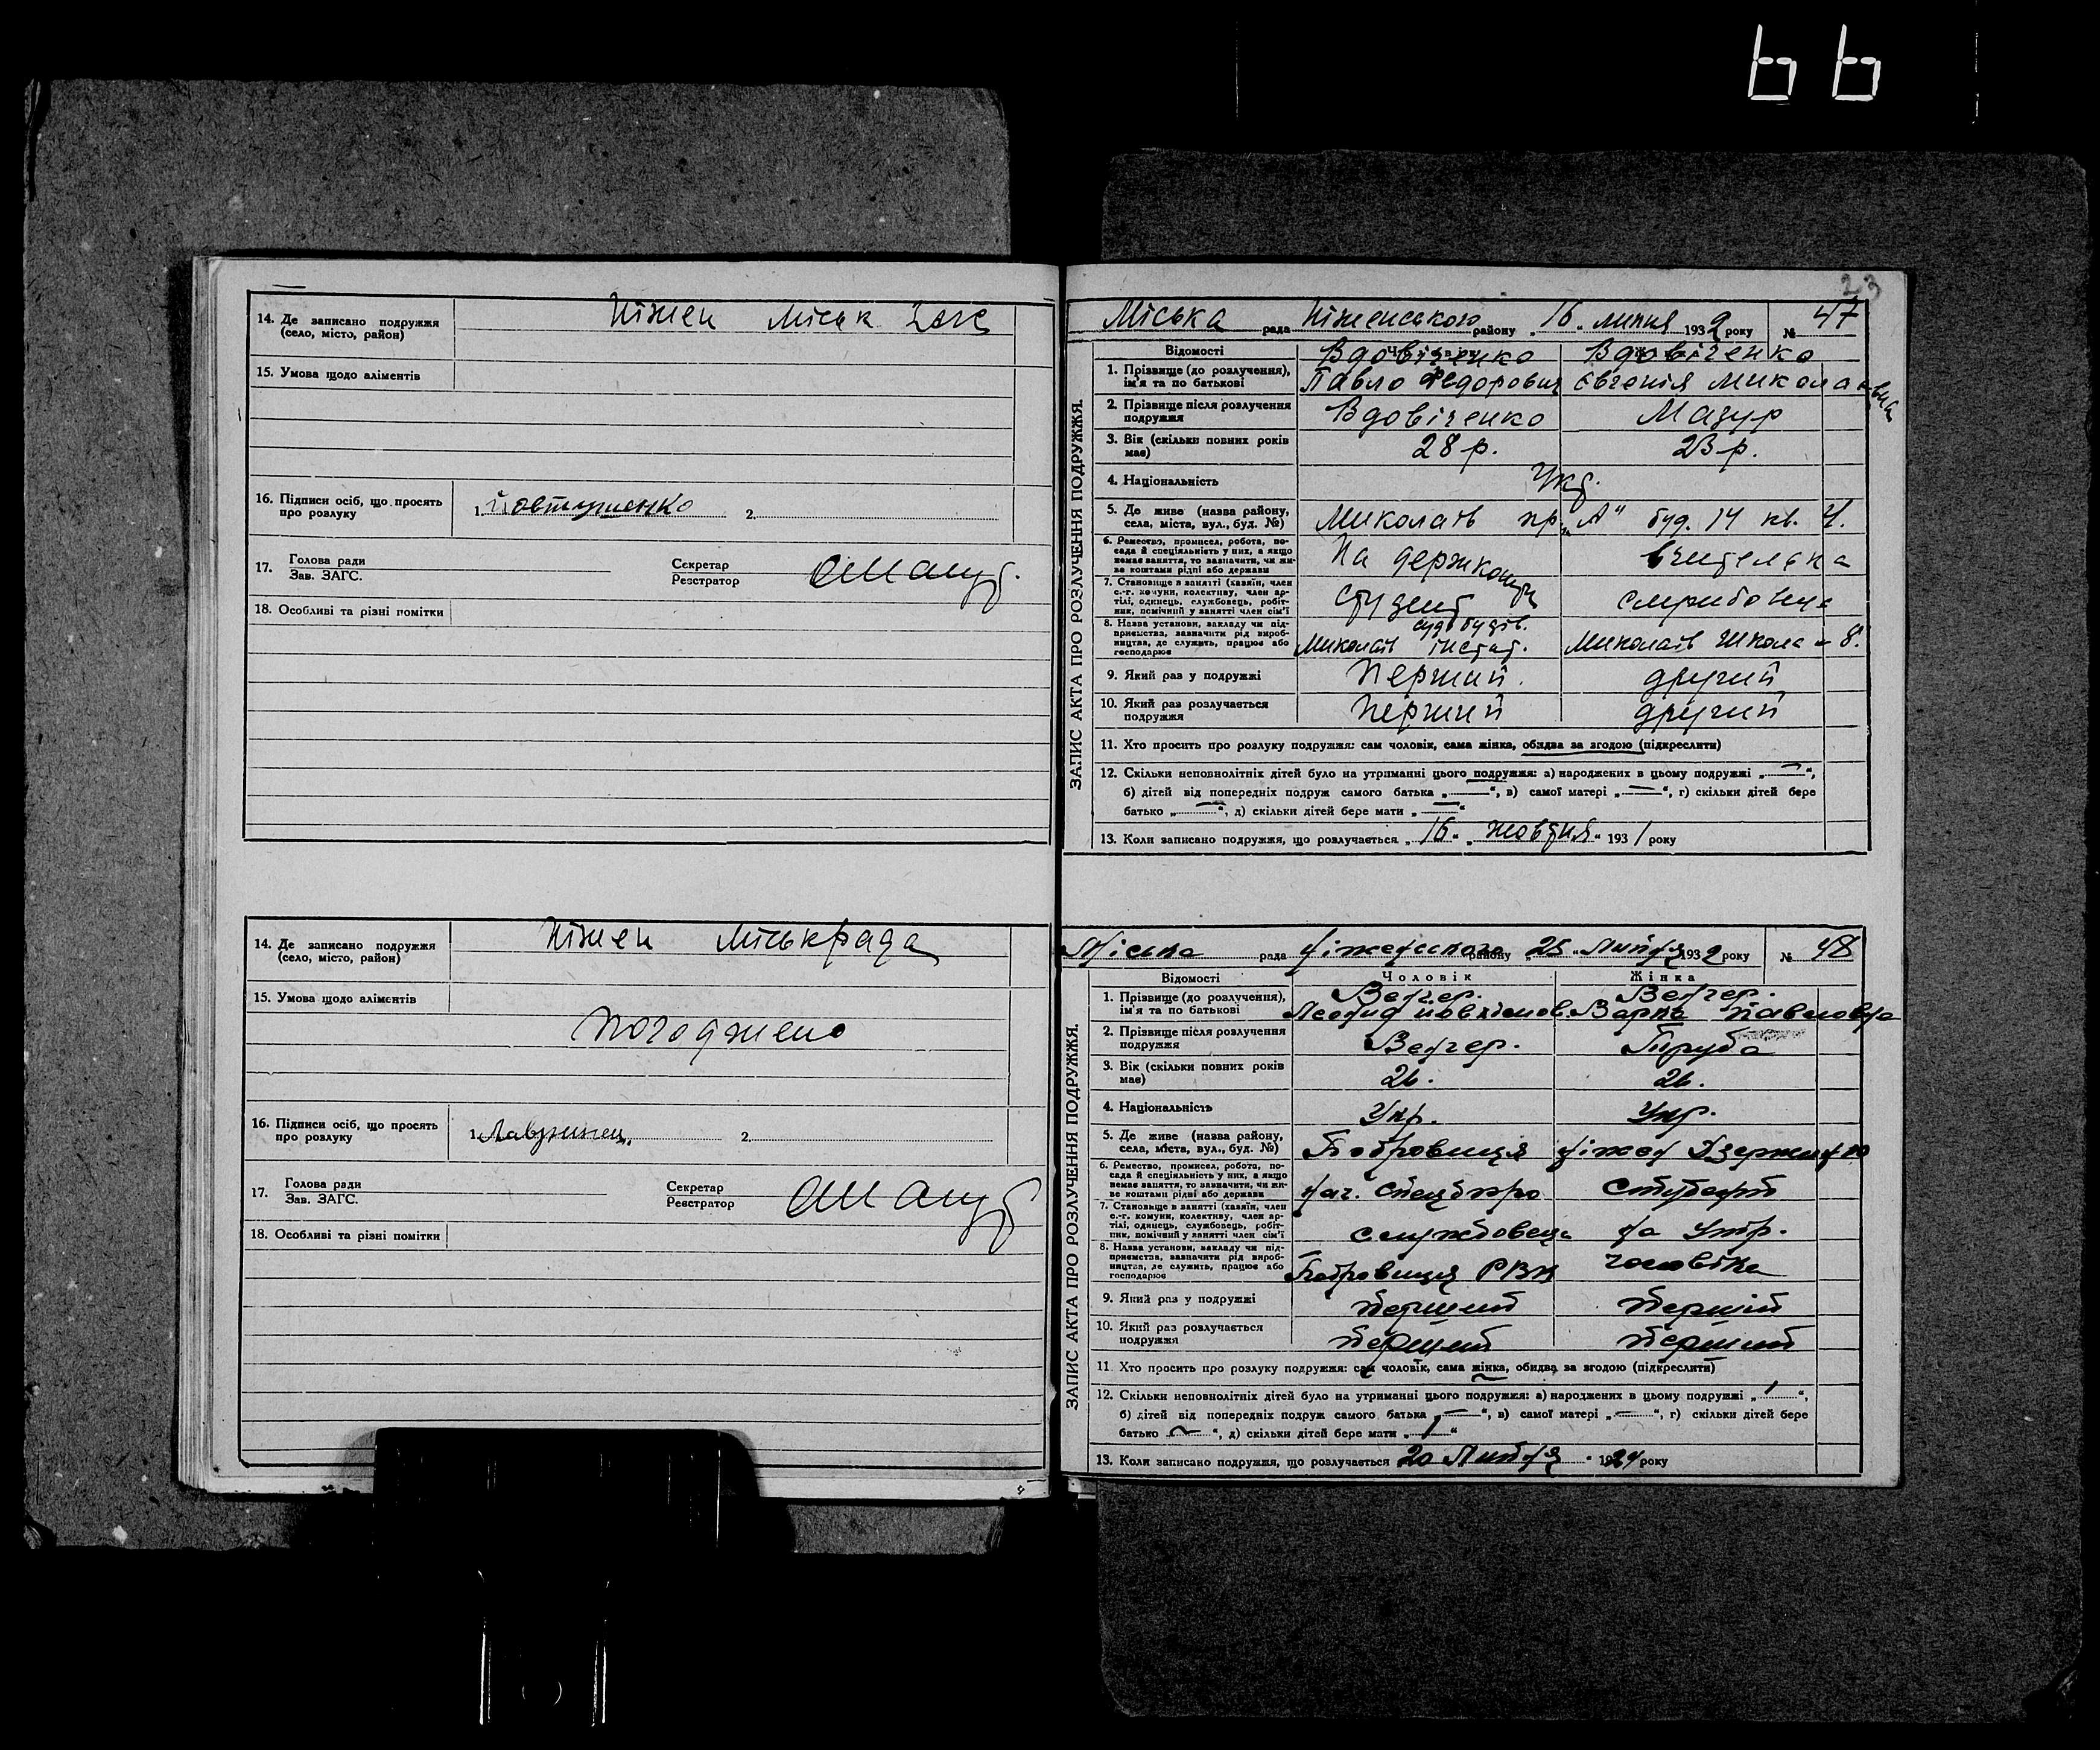 66
14. Де записано подружжя
(село, місто, район)
Ніжен Міськ Загс
15. Умова щодо аліментів
16. Підписи осіб, що просять
про розлуку
1. 2.
17. Голова ради
Зав. ЗАГС.
Секретар
Реєстратор
18. Особливі та різні помітки
14. Де записано подружжя
(село, місто, район)
Ніжен Міськрада
15. Умова щодо аліментів
Погоджено
16. Підписи осіб, що просять
про розлуку
1. Лавринец 2.
17. Голова ради
Зав. ЗАГС.
Секретар
Реєстратор
18. Особливі та різні помітки
23
ЗАПИС АКТА ПРО РОЗЛУЧЕННЯ ПОДРУЖЖЯ.
Міська рада Ніженського району „16„ липня 1932 року № 47
Відомості
Вдовіченко Вдовіченко
1. Прізвище (до розлучення),
ім'я та по батькові
Павло Федорович Євгенія Миколаєвна
2. Прізвище після розлучення
подружжя
Вдовіченко Мазур
3. Вік (скільки повних років
має)
28 р. 23 р.
4. Національність
Укр.
5. Де живе (назва району,
села, міста, вул., буд. №)
Миколаїв пр. „А" буд. 14 кв. 4.
6. Ремество, промисел, робота, по-
сада й спеціяльність у них, а якщо
немає заняття, то зазначити, чи жи-
ве коштами рідні або держави
На держкошти вчителька
7. Становище в занятті (хазяїн, член
с.-г. комуни, колективу, член ар-
тілі, одинець, службовець, робіт-
ник, помічний у занятті член сім'ї
студент службовець
8. Назва установи, закладу чи під-
приємства, зазначити рід вироб-
ництва, де служить, працює або
господарює
судобудів.
Миколаїв інстит. Миколаїв школа - 8.
9. Який раз у подружжі
Перший. другий
10. Який раз розлучається
подружжя
Перший другий
11. Хто просить про розлуку подружжя: сам чоловік, сама жінка, обидва за згодою (підкреслити)
12. Скільки неповнолітніх дітей було на утриманні цього подружжя: а) народжених в цьому подружжі „—“,
б) дітей від попередніх подруж самого батька „—“, в) самої матері „—“, г) скільки дітей бере
батько „—“, д) скільки дітей бере мати „—“
13. Коли записано подружжя, що розлучається „16„ „жовтня“ 1931 року
ЗАПИС АКТА ПРО РОЗЛУЧЕННЯ ПОДРУЖЖЯ.
Міська рада Ніженського району „25„ Липня 1932 року № 48
Відомості Чоловік Жінка
Венгер. Венгер.
1. Прізвище (до розлучення),
ім'я та по батькові
Леонид Варка Павловна
2. Прізвище після розлучення
подружжя
Венгер. Труба
3. Вік (скільки повних років
має)
26. 26.
4. Національність
Укр. Укр.
5. Де живе (назва району,
села, міста, вул., буд. №)
Бобровиця Ніжен
6. Ремество, промисел, робота, по-
сада й спеціяльність у них, а якщо
немає заняття, то зазначити, чи жи-
ве коштами рідні або держави
нач. Спецбюро студент
7. Становище в занятті (хазяїн, член
с.-г. комуни, колективу, член ар-
тілі, одинець, службовець, робіт-
ник, помічний у занятті член сім'ї
службовець на Утр.
8. Назва установи, закладу чи під-
приємства, зазначити рід вироб-
ництва, де служить, працює або
господарює
Бобровиця РВК чоловіка
9. Який раз у подружжі
Перший Перший
10. Який раз розлучається
подружжя
Перший Перший
11. Хто просить про розлуку подружжя: сам чоловік, сама жінка, обидва за згодою (підкреслити)
12. Скільки неповнолітніх дітей було на утриманні цього подружжя: а) народжених в цьому подружжі „1“,
б) дітей від попередніх подруж самого батька „—“, в) самої матері „—“, г) скільки дітей бере
батько „—“, д) скільки дітей бере мати „1“
13. Коли записано подружжя, що розлучається 20 Липня 1929 року